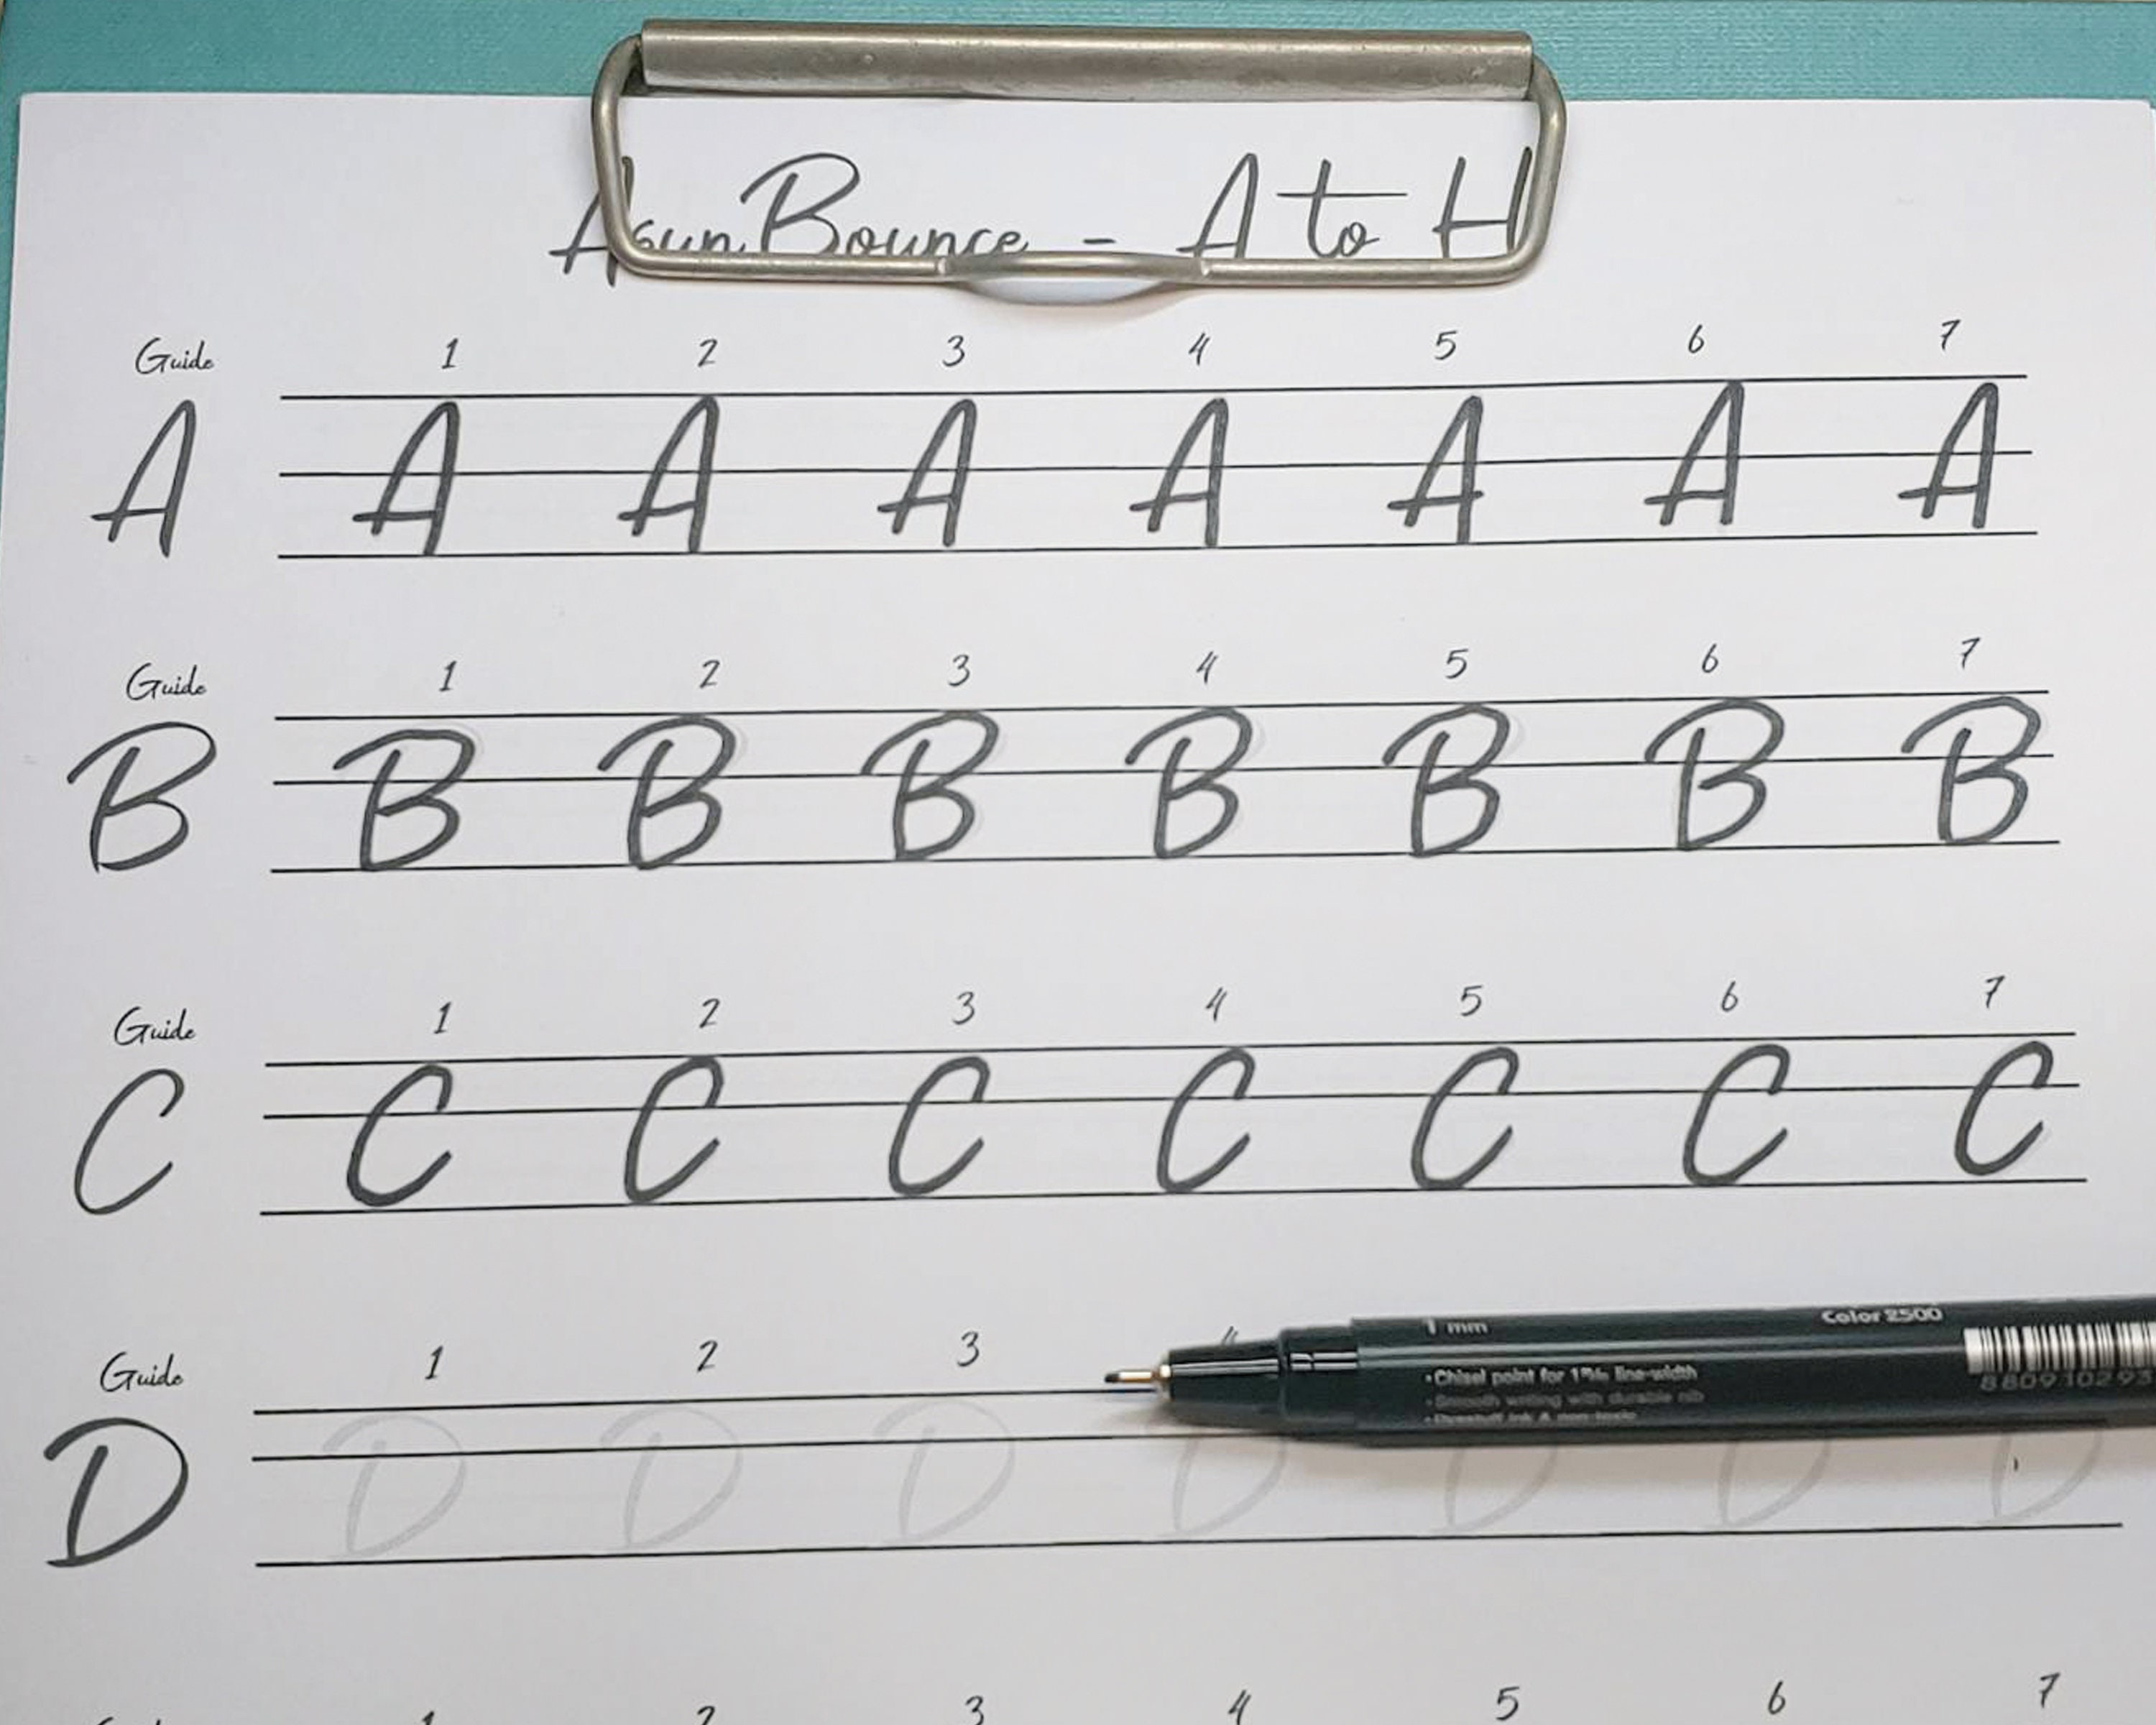 Asun Bounce - A to H
Guide 1 2 3 4 5 6 7
A A A A A A A A
Guide 1 2 3 4 5 6 7
B B B B B B B B
Guide 1 2 3 4 5 6 7
C C C C C C C C
Guide 1 2 3 4
D D D D D D D D
1 mm Color 2500
• Chisel point for 1mm line-width
• Smooth writing with durable nib
8809102 93
Guide 1 2 3 4 5 6 7